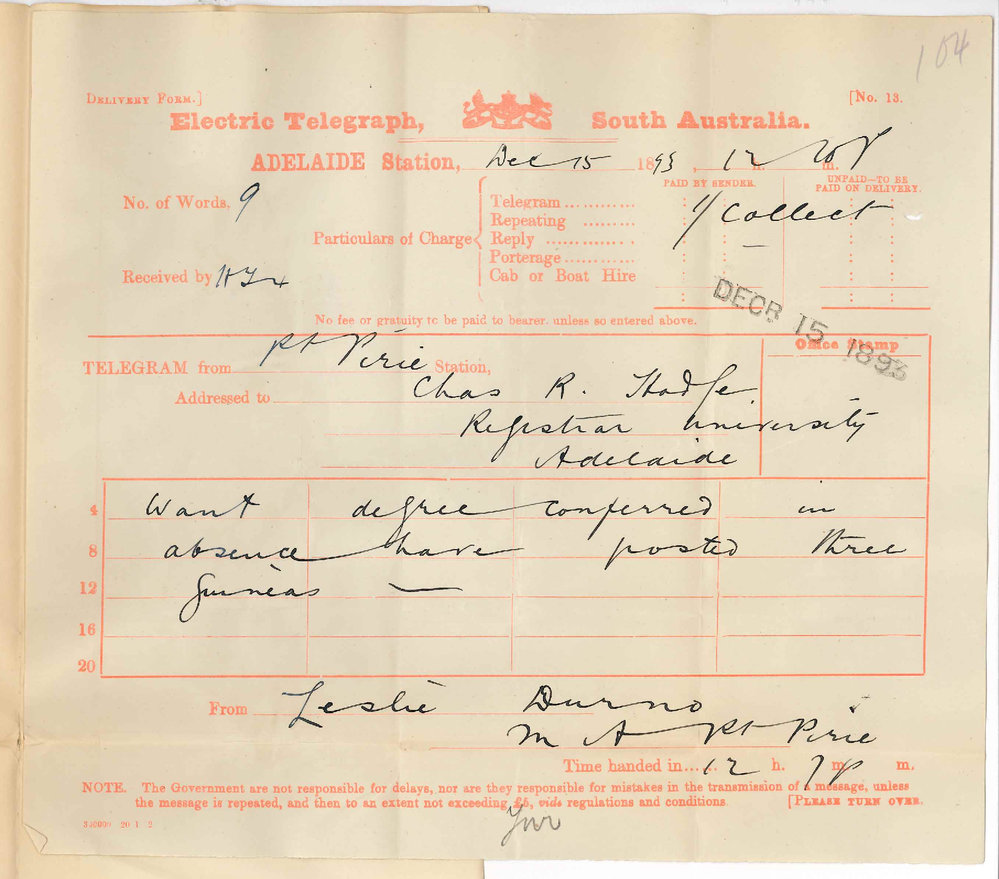 104
DELIVERY FORM.] [No. 13.
Electric Telegraph, South Australia.
ADELAIDE Station, Dec 15 1893, 12 h. m.
No. of Words. 9
Particulars of Charge
PAID BY SENDER. UNPAID—TO BE PAID ON DELIVERY.
Telegram ............ 1/ Collect
Repeating .......
Reply ...............
Porterage ............
Cab or Boat Hire
Received by
No fee or gratuity to be paid to bearer, unless so entered above.
DECR 15 1893
Office Stamp
TELEGRAM from Pt Pirie Station,
Addressed to Chas R. Hodge
Registrar University
Adelaide
4 Want degree conferred in
8 absence have posted three
12 Guineas —
16
20
From Leslie Durno
M A Pt Pirie
Time handed in...... 12 h. 7 p m. m.
NOTE. The Government are not responsible for delays, nor are they responsible for mistakes in the transmission of a message, unless
the message is repeated, and then to an extent not exceeding £5, vide regulations and conditions. [PLEASE TURN OVER.